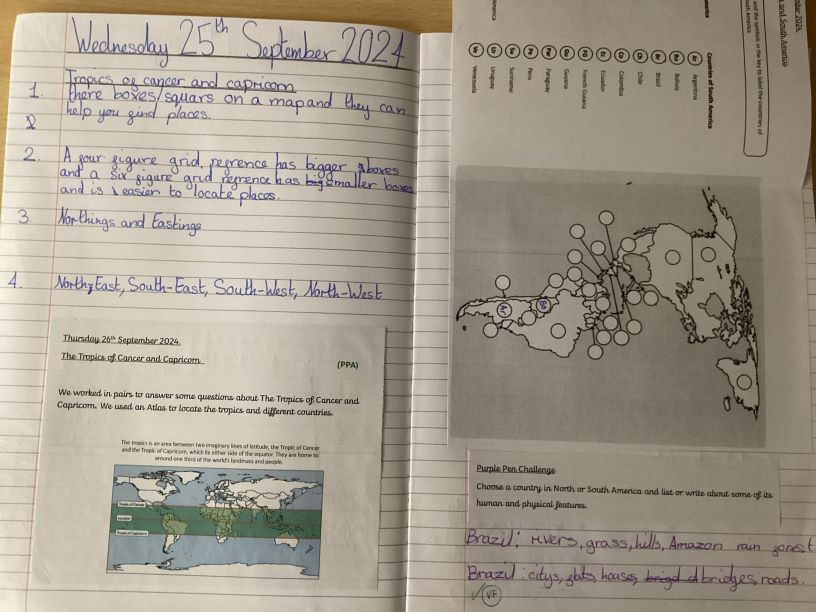 Wednesday 25th September 2024
Tropics of cancer and capricorn
1. there boxes/squars on a map and they can
help you find places.
2. A four figure grid regrence has bigger boxes
and a six figure grid regrence has smaller boxes
and is easier to locate places.
3. Northings and Eastings
4. North-East, South-East, South-West, North-West
Thursday 26th September 2024.
The Tropics of Cancer and Capricorn
(PPA)
We worked in pairs to answer some questions about The Tropics of Cancer and
Capricorn. We used an Atlas to locate the tropics and different countries.
The tropics is an area between two imaginary lines of latitude, the Tropic of Cancer
and the Tropic of Capricorn, which lie either side of the equator. They are home to
around one third of the world's landmass and people.
Tropic of Cancer
Equator
Tropic of Capricorn
ber 2024.
and South America
and the symbols in the key to label the countries of
outh America
merica
America
Countries of South America
Ar Argentina
Bo Bolivia
Br Brazil
Ch Chile
Co Colombia
Ec Ecuador
FG French Guiana
Gu Guyana
Paraguay
Pe Peru
Su Suriname
Ur Uruguay
Ve Venezuela
Ar
Bo
Purple Pen Challenge
Choose a country in North or South America and list or write about some of its
human and physical features.
Brazil: rivers, grass, hills, Amazon rain forest
Brazil: citys, flats, houses, bridges, roads.
VF